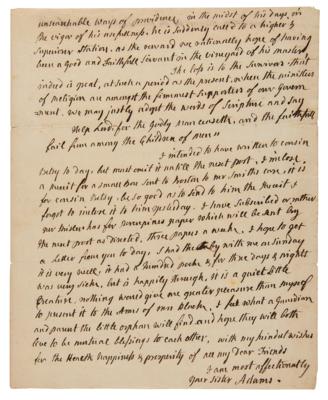 unsearchable ways of Providence in the midst of his days, in
the vigor of his usefulness. he is suddenly called to a higher &
Superiour Station. as the reward we rationally hope of having
been a Good and Faithfull Servant in the vineyard of his master
The loss is to the Survivors. that
indeed is great, at such a period as the present, when the ministers
of Religion are amongst the firmest supporters of our Govern
ment. we may justly adopt the words of Scripture and Say
Help Lord for the Godly man ceaseth, and the faithfull
fail from among the Children of men"
I intended to have written to cousin
Betsy to day, but must omit it untill the next post. I inclose
a receit for a small box sent to Boston to mr Smiths care. it is
for cousin Betsy. be so good as to send to him the Receit. I
forgot to inclose it to him yesterday. I have Subscribed or rather
mr for porcupines paper which will be sent by
the next post as directed, three papers a week. I hope to get
a Letter from you to day. I had the baby with me on Sunday
it is very well. it had a hundred pock & for three days & nights
was very Sick. but is happily through. it is a quiet little
Creature. nothing would give me greater pleasure than myself
to present it to the Arms of mrs Black. & but what a Guardian
and parent the little orphan will find. and hope they will both
live to be mutual blessings to each other, with my kindest wishes
for the Health happiness & prosperity of all my Dear Friends
I am most affectionatly
your sister Adams.